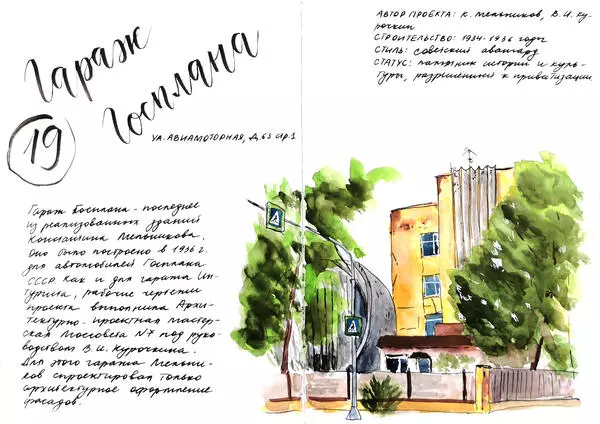 Гараж
Госплана
19
УЛ. АВИАМОТОРНАЯ, Д.63 стр.1
АВТОР ПРОЕКТА: К. МЕЛЬНИКОВ, В.И. КУ-
РОЧКИН
СТРОИТЕЛЬСТВО: 1934-1936 годы
СТИЛЬ: советский авангард
СТАТУС: памятник истории и куль-
туры, разрешенный к приватизации
Гараж Госплана - последнее
из реализованных зданий
Константина Мельникова.
Оно было построено в 1936 г.
для автомобилей Госплана
СССР. Как и для гаража Ин-
туриста, рабочие чертежи
проекта выполнила Архи-
тектурно-проектная мастер-
ская Моссовета №7 под руко-
водством В.И. Курочкина.
Для этого гаража Мельни-
ков спроектировал только
архитектурное оформление
фасадов.